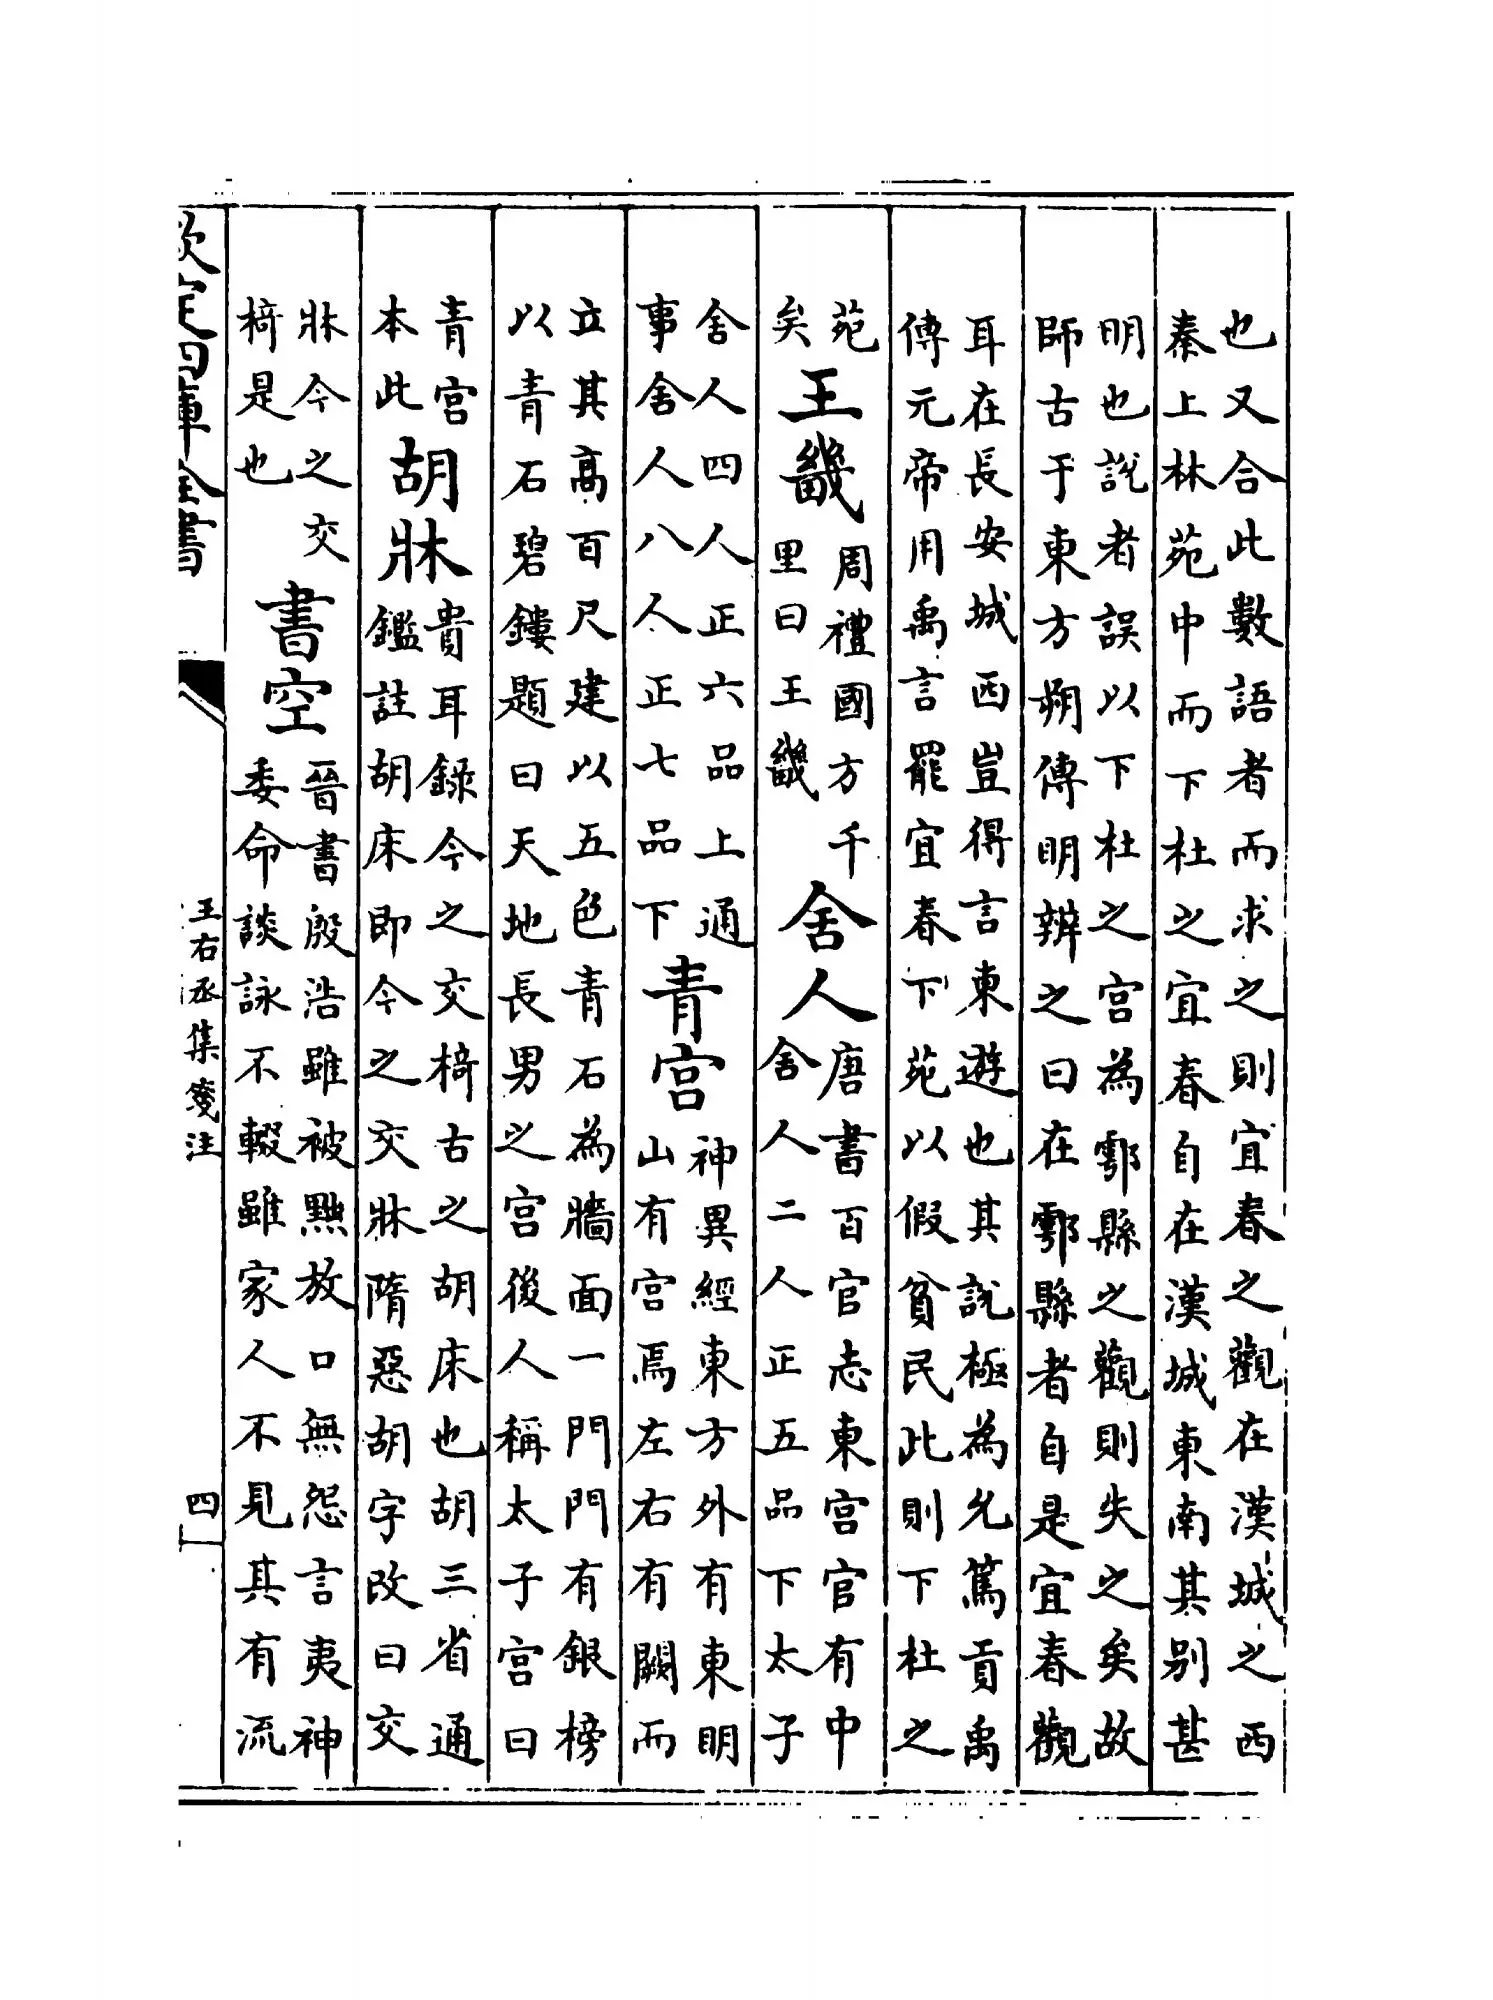 也又合此數語者而求之則宜春之觀在漢城之西
秦上林苑中而下杜之宜春自在漢城東南其别甚
明也說者誤以下杜之宫為鄠縣之觀則失之矣故
師古于東方朔傳明辨之曰在鄠縣者自是宜春觀
耳在長安城西豈得言東遊也其説極為允篤貢禹
傳元帝用禹言罷宜春下苑以假貧民此則下杜之
苑
矣
王畿
周禮國方千
里曰王畿
舍人
唐書百官志東宫官有中
舍人二人正五品下太子
舍人四人正六品上通
事舍人八人正七品下
青宫
神異經東方外有東明
山有宫焉左右有闕而
立其高百尺建以五色青石為牆面一門門有銀榜
以青石碧鏤題曰天地長男之宫後人稱太子宫曰
青宫
本此
胡牀
貴耳録今之交椅古之胡床也胡三省通
鑑註胡床即今之交牀隋惡胡字改曰交
牀今之交
椅是也
書空
晉書殷浩雖被黜放口無怨言夷神
委命談詠不輟雖家人不見其有流
欽定四庫全書
王右丞集箋注
四